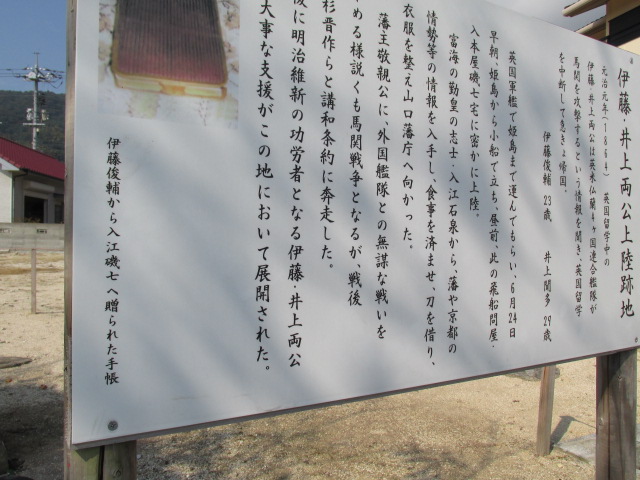 伊藤・井上両公上陸跡地
元治元年(1864) 英国留学中の
伊藤・井上両公は英米仏蘭4ヶ国連合艦隊が
馬関を攻撃するという情報を聞き、英国留学
を中断して急きょ帰国。
伊藤俊輔 23歳 井上聞多 29歳
英国軍艦で姫島まで運んでもらい、6月24日
早朝、姫島から小船で立ち、昼前、此の飛船問屋・
入本屋磯七宅に密かに上陸。
富海の勤皇の志士・入江石泉から、藩や京都の
情勢等の情報を入手し、食事を済ませ、刀を借り、
衣服を整え山口藩庁へ向かった。
藩主敬親公に、外国艦隊との無謀な戦いを
める様説くも馬関戦争となるが、戦後
杉晋作らと講和条約に奔走した。
後に明治維新の功労者となる伊藤・井上両公
大事な支援がこの地において展開された。
伊藤俊輔から入江磯七へ贈られた手帳